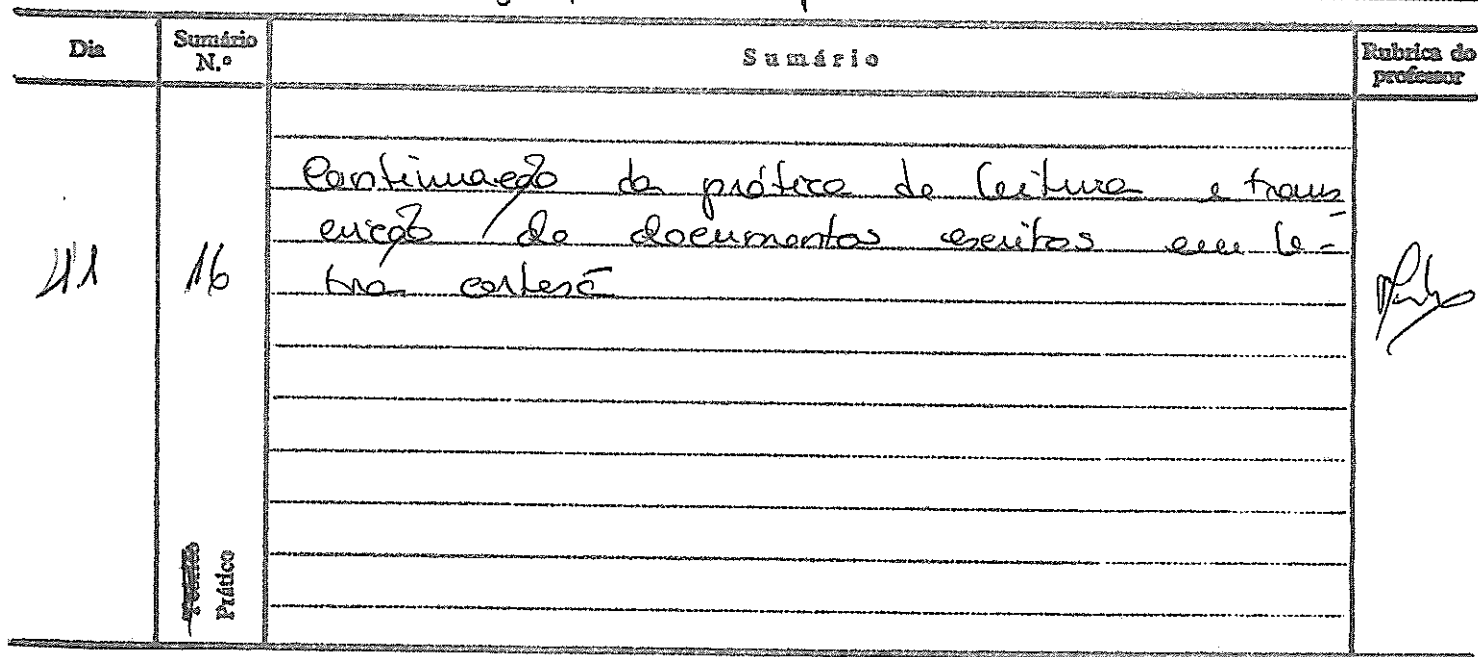 Dia
Sumário N.º
Sumário
Rubrica do professor
11
16
Continuação da prática de leitura e trans
crição de documentos escritos em le-
tra cortesã
Prático